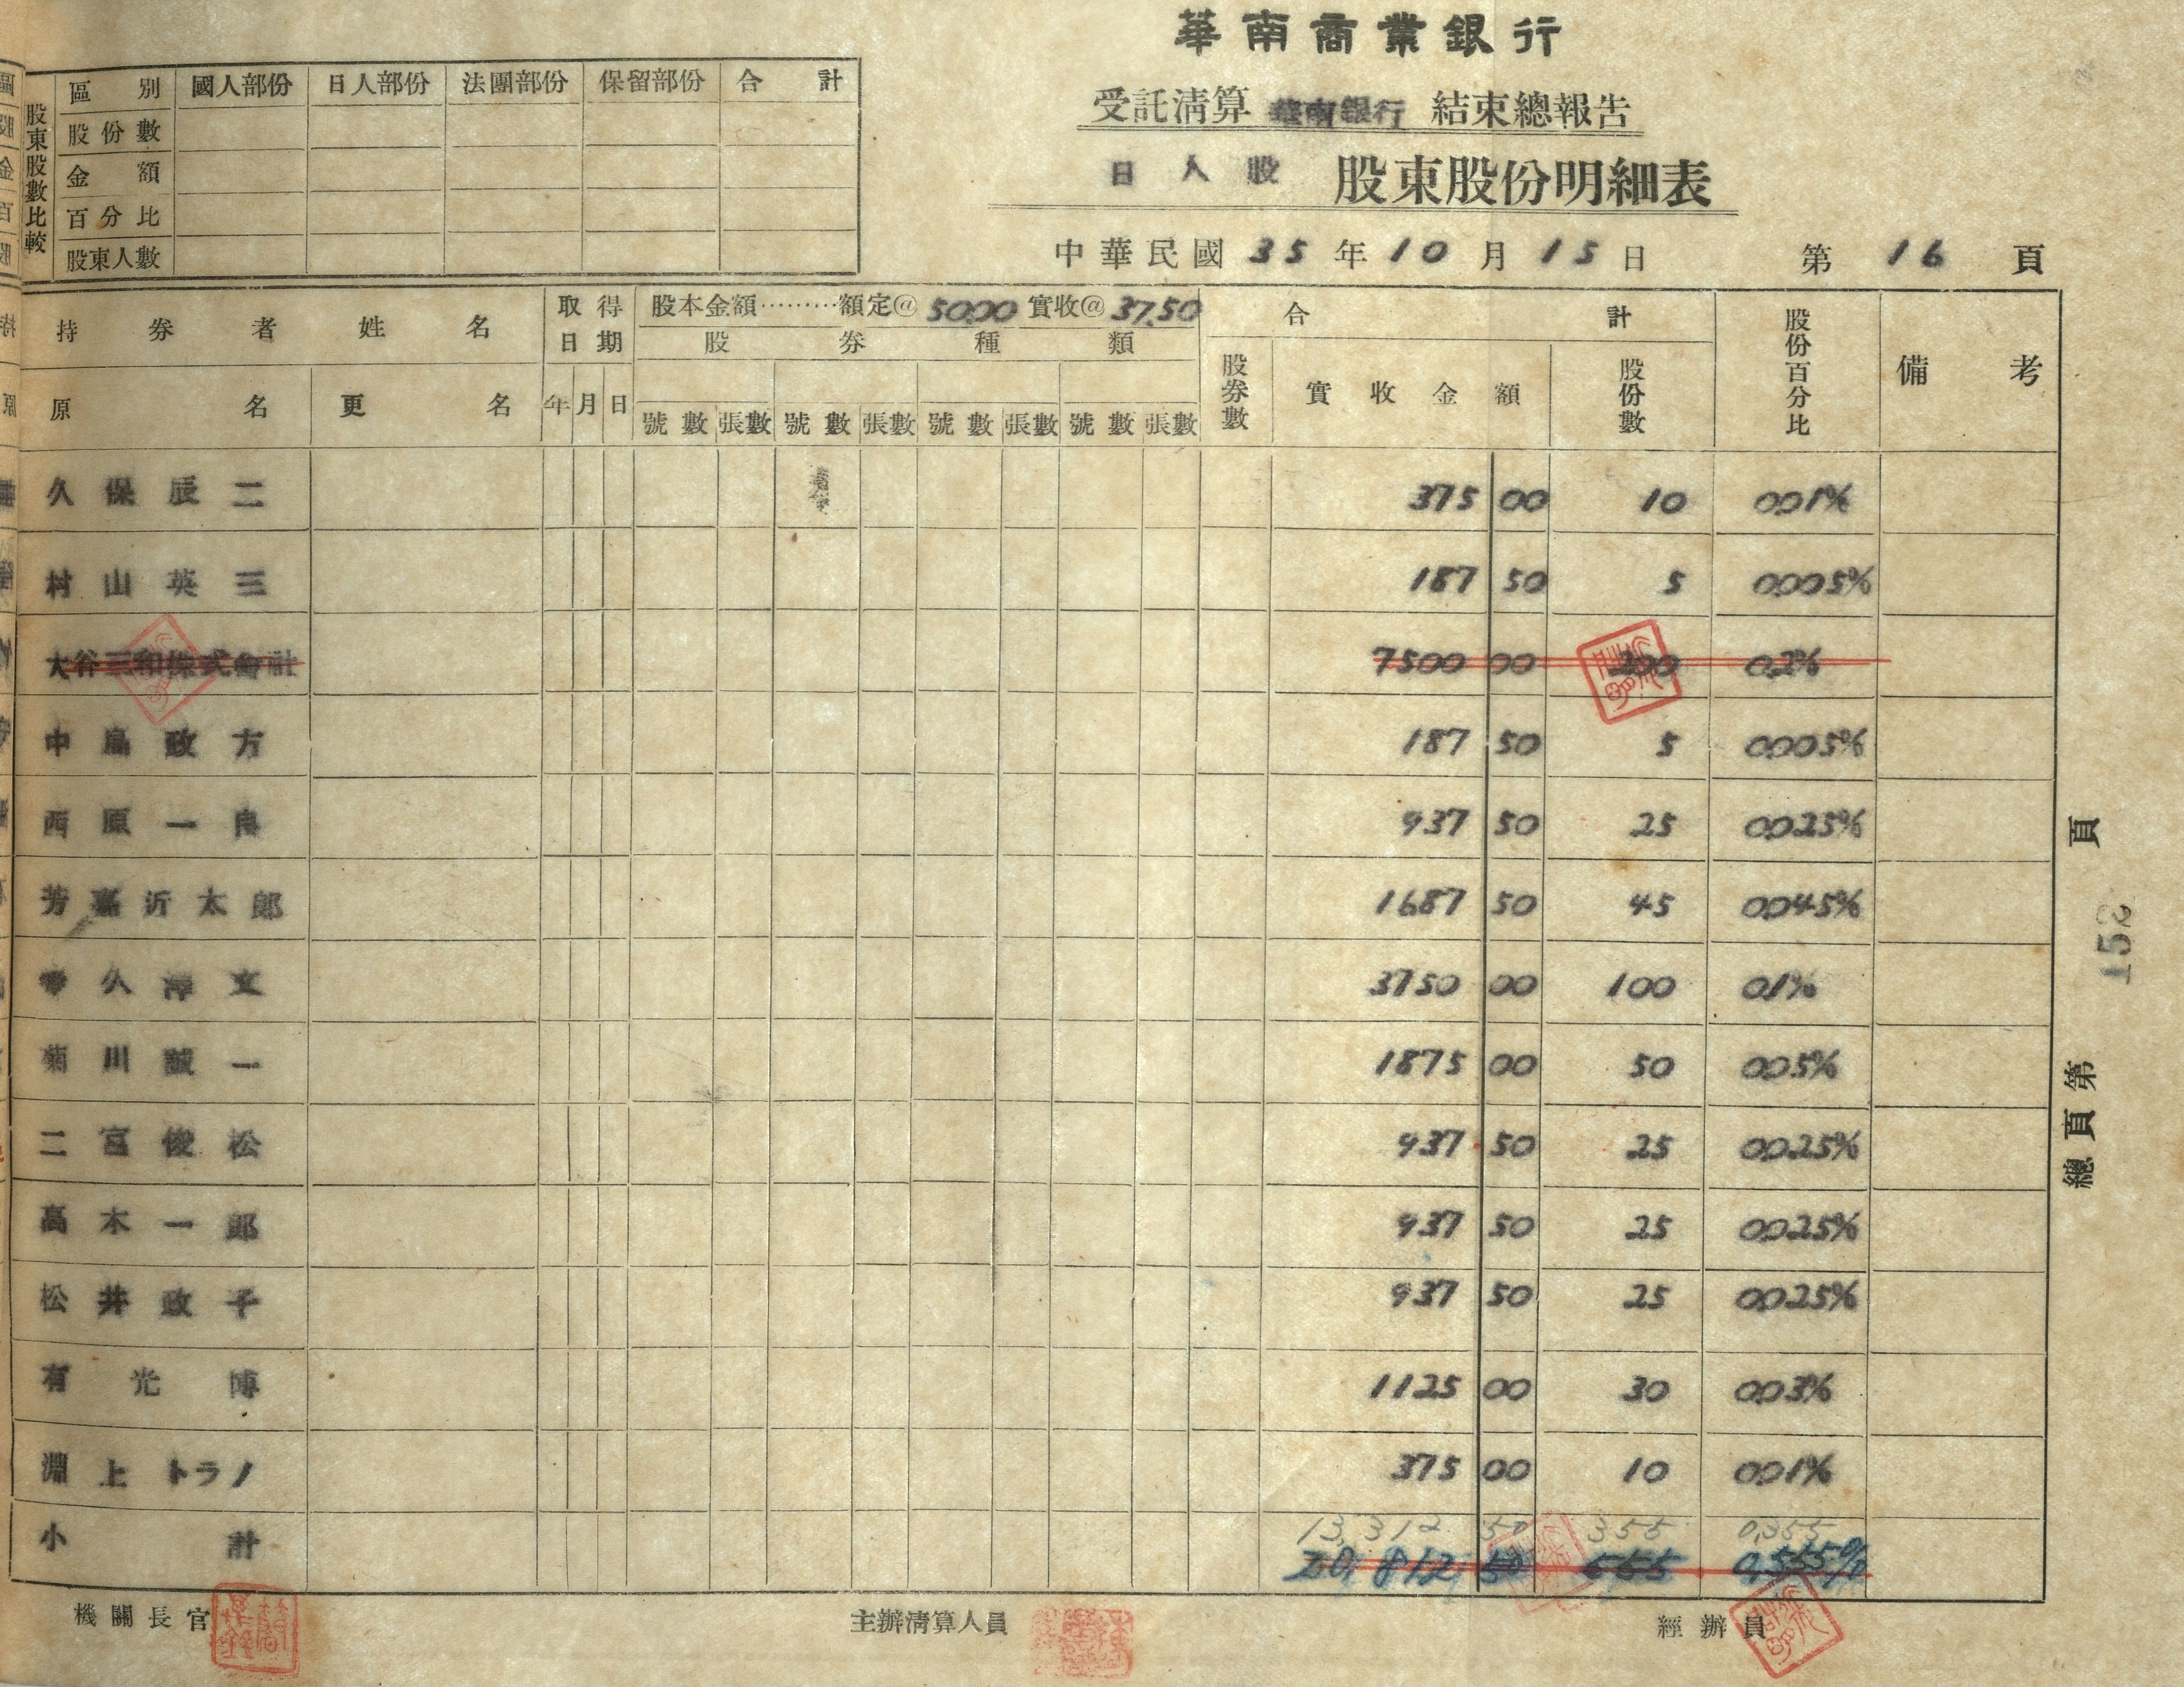 華南商業銀行
受託清算 華南銀行 結束總報告
日人股 股東股份明細表
中華民國 35 年 10 月 15 日 第 16 頁
股東股數比較
區別 國人部份 日人部份 法團部份 保留部份 合計
股份數
金額
百分比
股東人數
持券者姓名 取得日期 股本金額………額定@ 50.00 實收@ 37.50 合計 股份百分比 備考
股券種類
原名 更名 年 月 日 號數 張數 號數 張數 號數 張數 號數 張數 股券數 實收金額 股份數
久保辰二 375 00 10 0.01%
村山英三 187 50 5 0.005%
大谷三和株式會社 7500 00 200 0.2%
中島政方 187 50 5 0.005%
西原一良 937 50 25 0.025%
芳嘉沂太郎 1687 50 45 0.045%
久澤文 3750 00 100 0.1%
菊川誠一 1875 00 50 0.05%
二宮俊松 937 50 25 0.025%
高木一郎 937 50 25 0.025%
松井政子 937 50 25 0.025%
有光博 1125 00 30 0.03%
淵上トラノ 375 00 10 0.01%
小計 13,312 50 355 0.355
20,812 50 555 0.555%
機關長官 主辦清算人員 經辦員
總頁第 153 頁